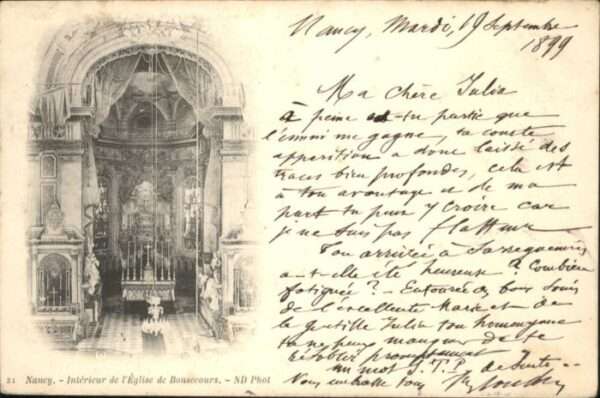 Nancy, Mardi, 19 Septembre
1899
Ma chère Julia
à peine es-tu partie que
l'ennui me gagne, ta courte
apparition a donc laissé des
traces bien profondes, cela est
à ton avantage et de ma
part tu peux y croire car
je ne suis pas flatteur
Ton arrivée à Sarreguemines
a-t-elle été heureuse ? Combien
fatiguée ? - Entourée des bons soins
de l'excellente Marie et de
la gentille Julia ton homonyme
tu ne peux manquer de te
rétablir promptement
un mot S.T.P. de suite --
Vous embrasse tous
21 Nancy. - Intérieur de l'Église de Bonsecours. - ND Phot